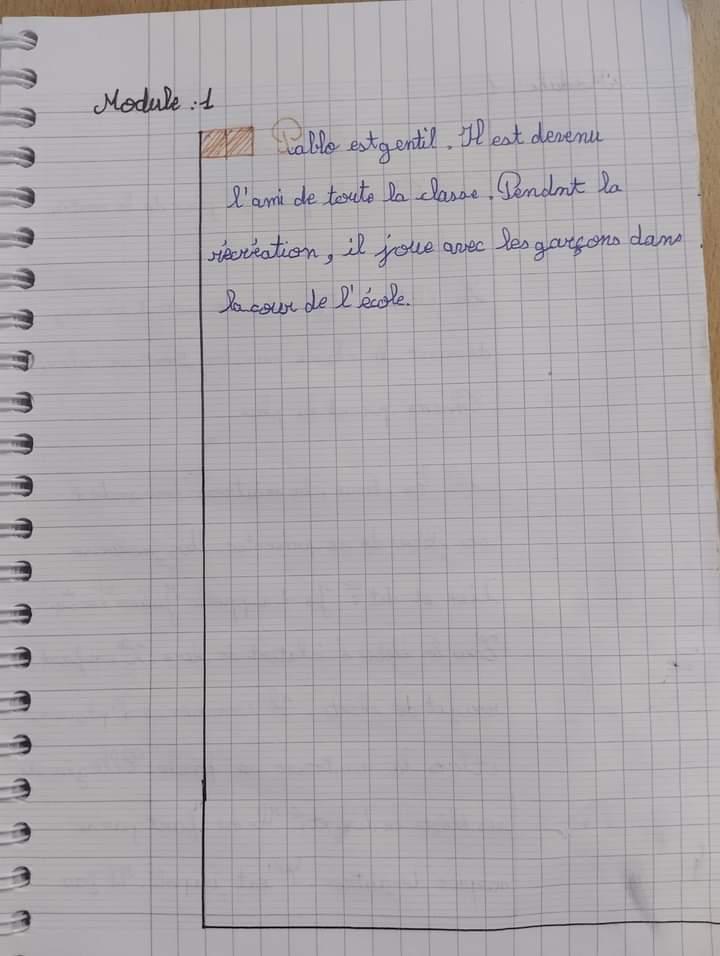 Module : 1
Pablo est gentil. Il est devenu
l'ami de toute la classe. Pendnt la
récréation, il joue avec les garçons dans
la cour de l'école.